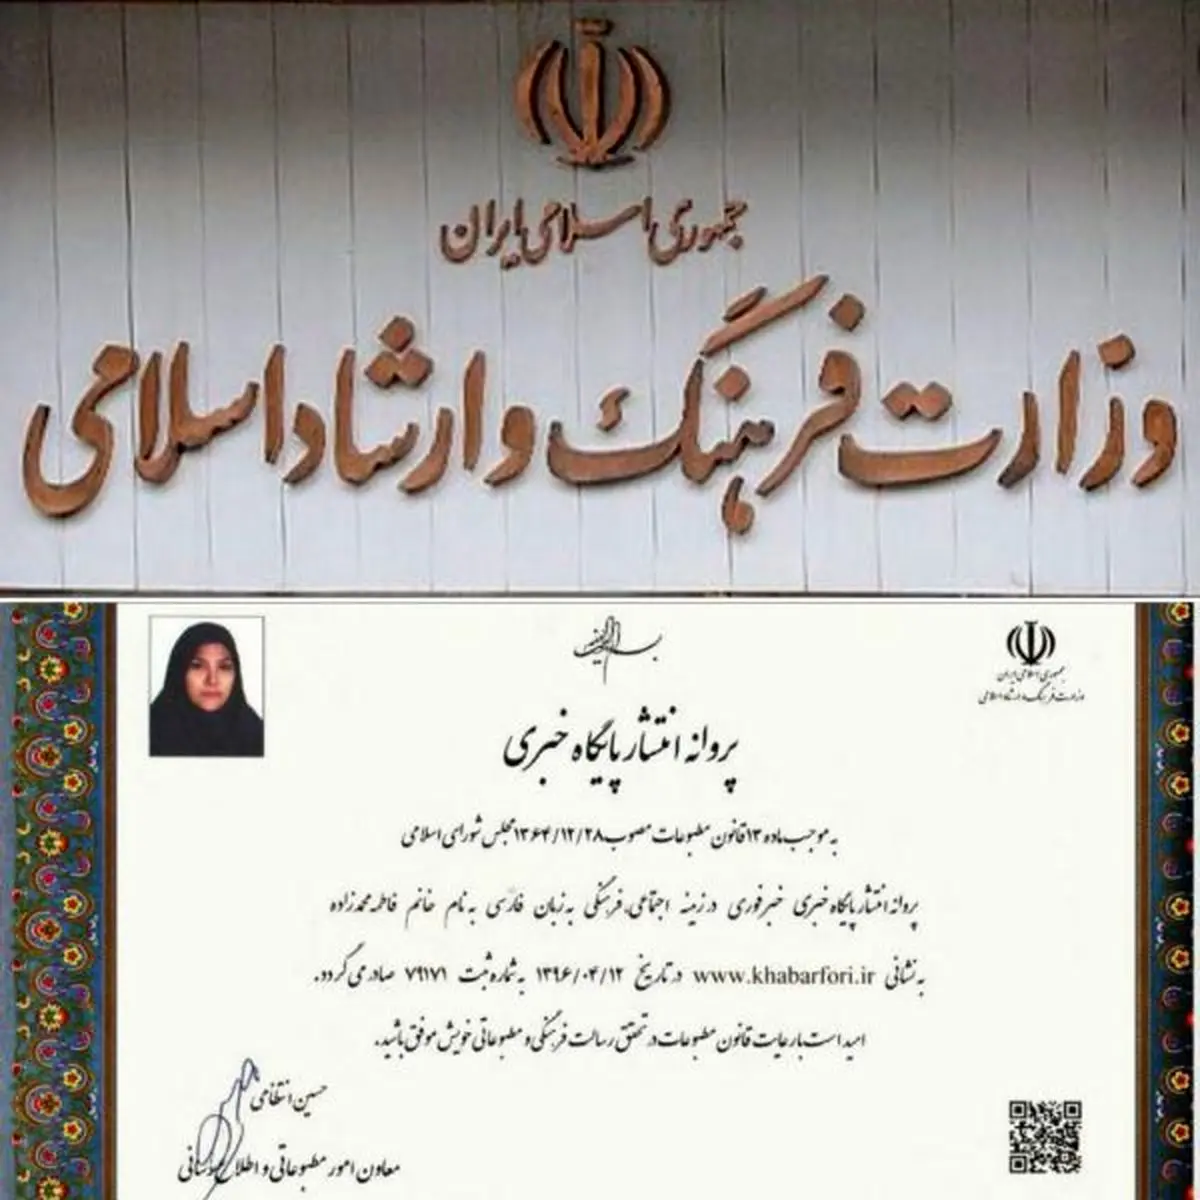 جمهوری اسلامی ایران
وزارت فرهنگ و ارشاد اسلامی
جمهوری اسلامی ایران
وزارت فرهنگ و ارشاد اسلامی
پروانه انتشار پایگاه خبری
به موجب ماده ۱۳ قانون مطبوعات مصوب ۱۳۶۴/۱۲/۲۸ مجلس شورای اسلامی
پروانه انتشار پایگاه خبری خبرفوری در زمینه اجتماعی، فرهنگی به زبان فارسی به نام خانم فاطمه محمدزاده
به نشانی www.khabarfori.ir در تاریخ ۱۳۹۶/۰۴/۱۲ به شماره ثبت ۷۹۱۷۱ صادر می گردد.
امید است با رعایت قانون مطبوعات در تحقق رسالت فرهنگی و مطبوعاتی خویش موفق باشید.
حسین انتظامی
معاون امور مطبوعاتی و اطلاع رسانی